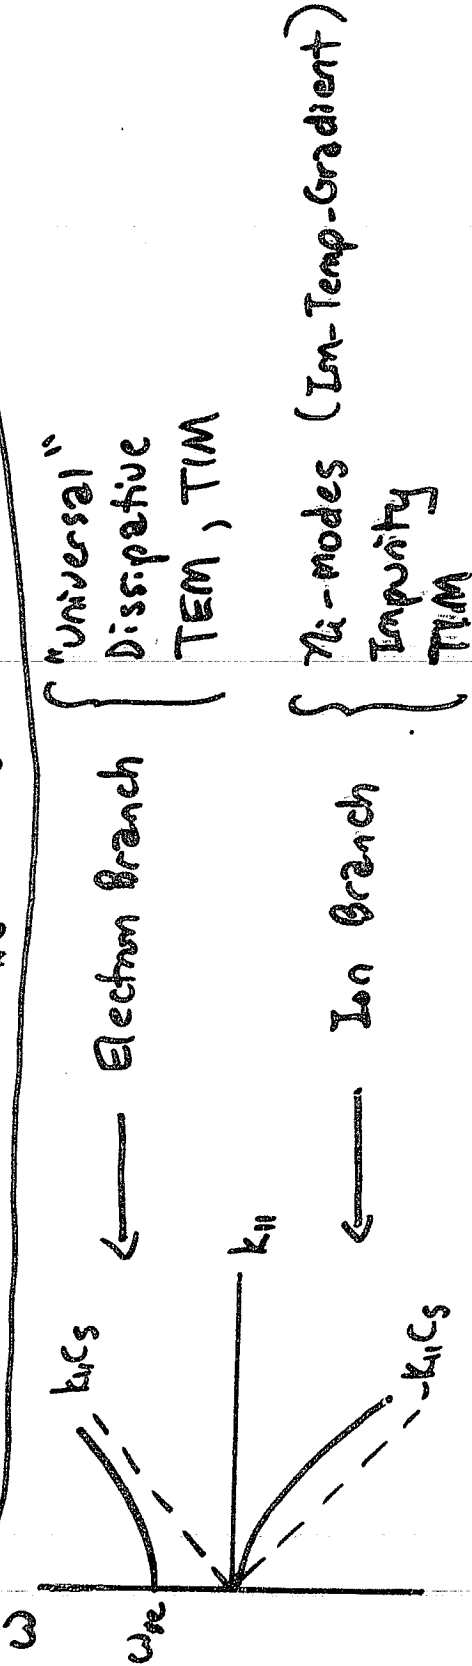 ω
ω*e
k∥cs
k∥
-k∥cs
← Electron Branch
← Ion Branch
{ "Universal"
Dissipative
TEM, TIM
{ ηi-modes (Ion-Temp-Gradient)
Impurity
TIM